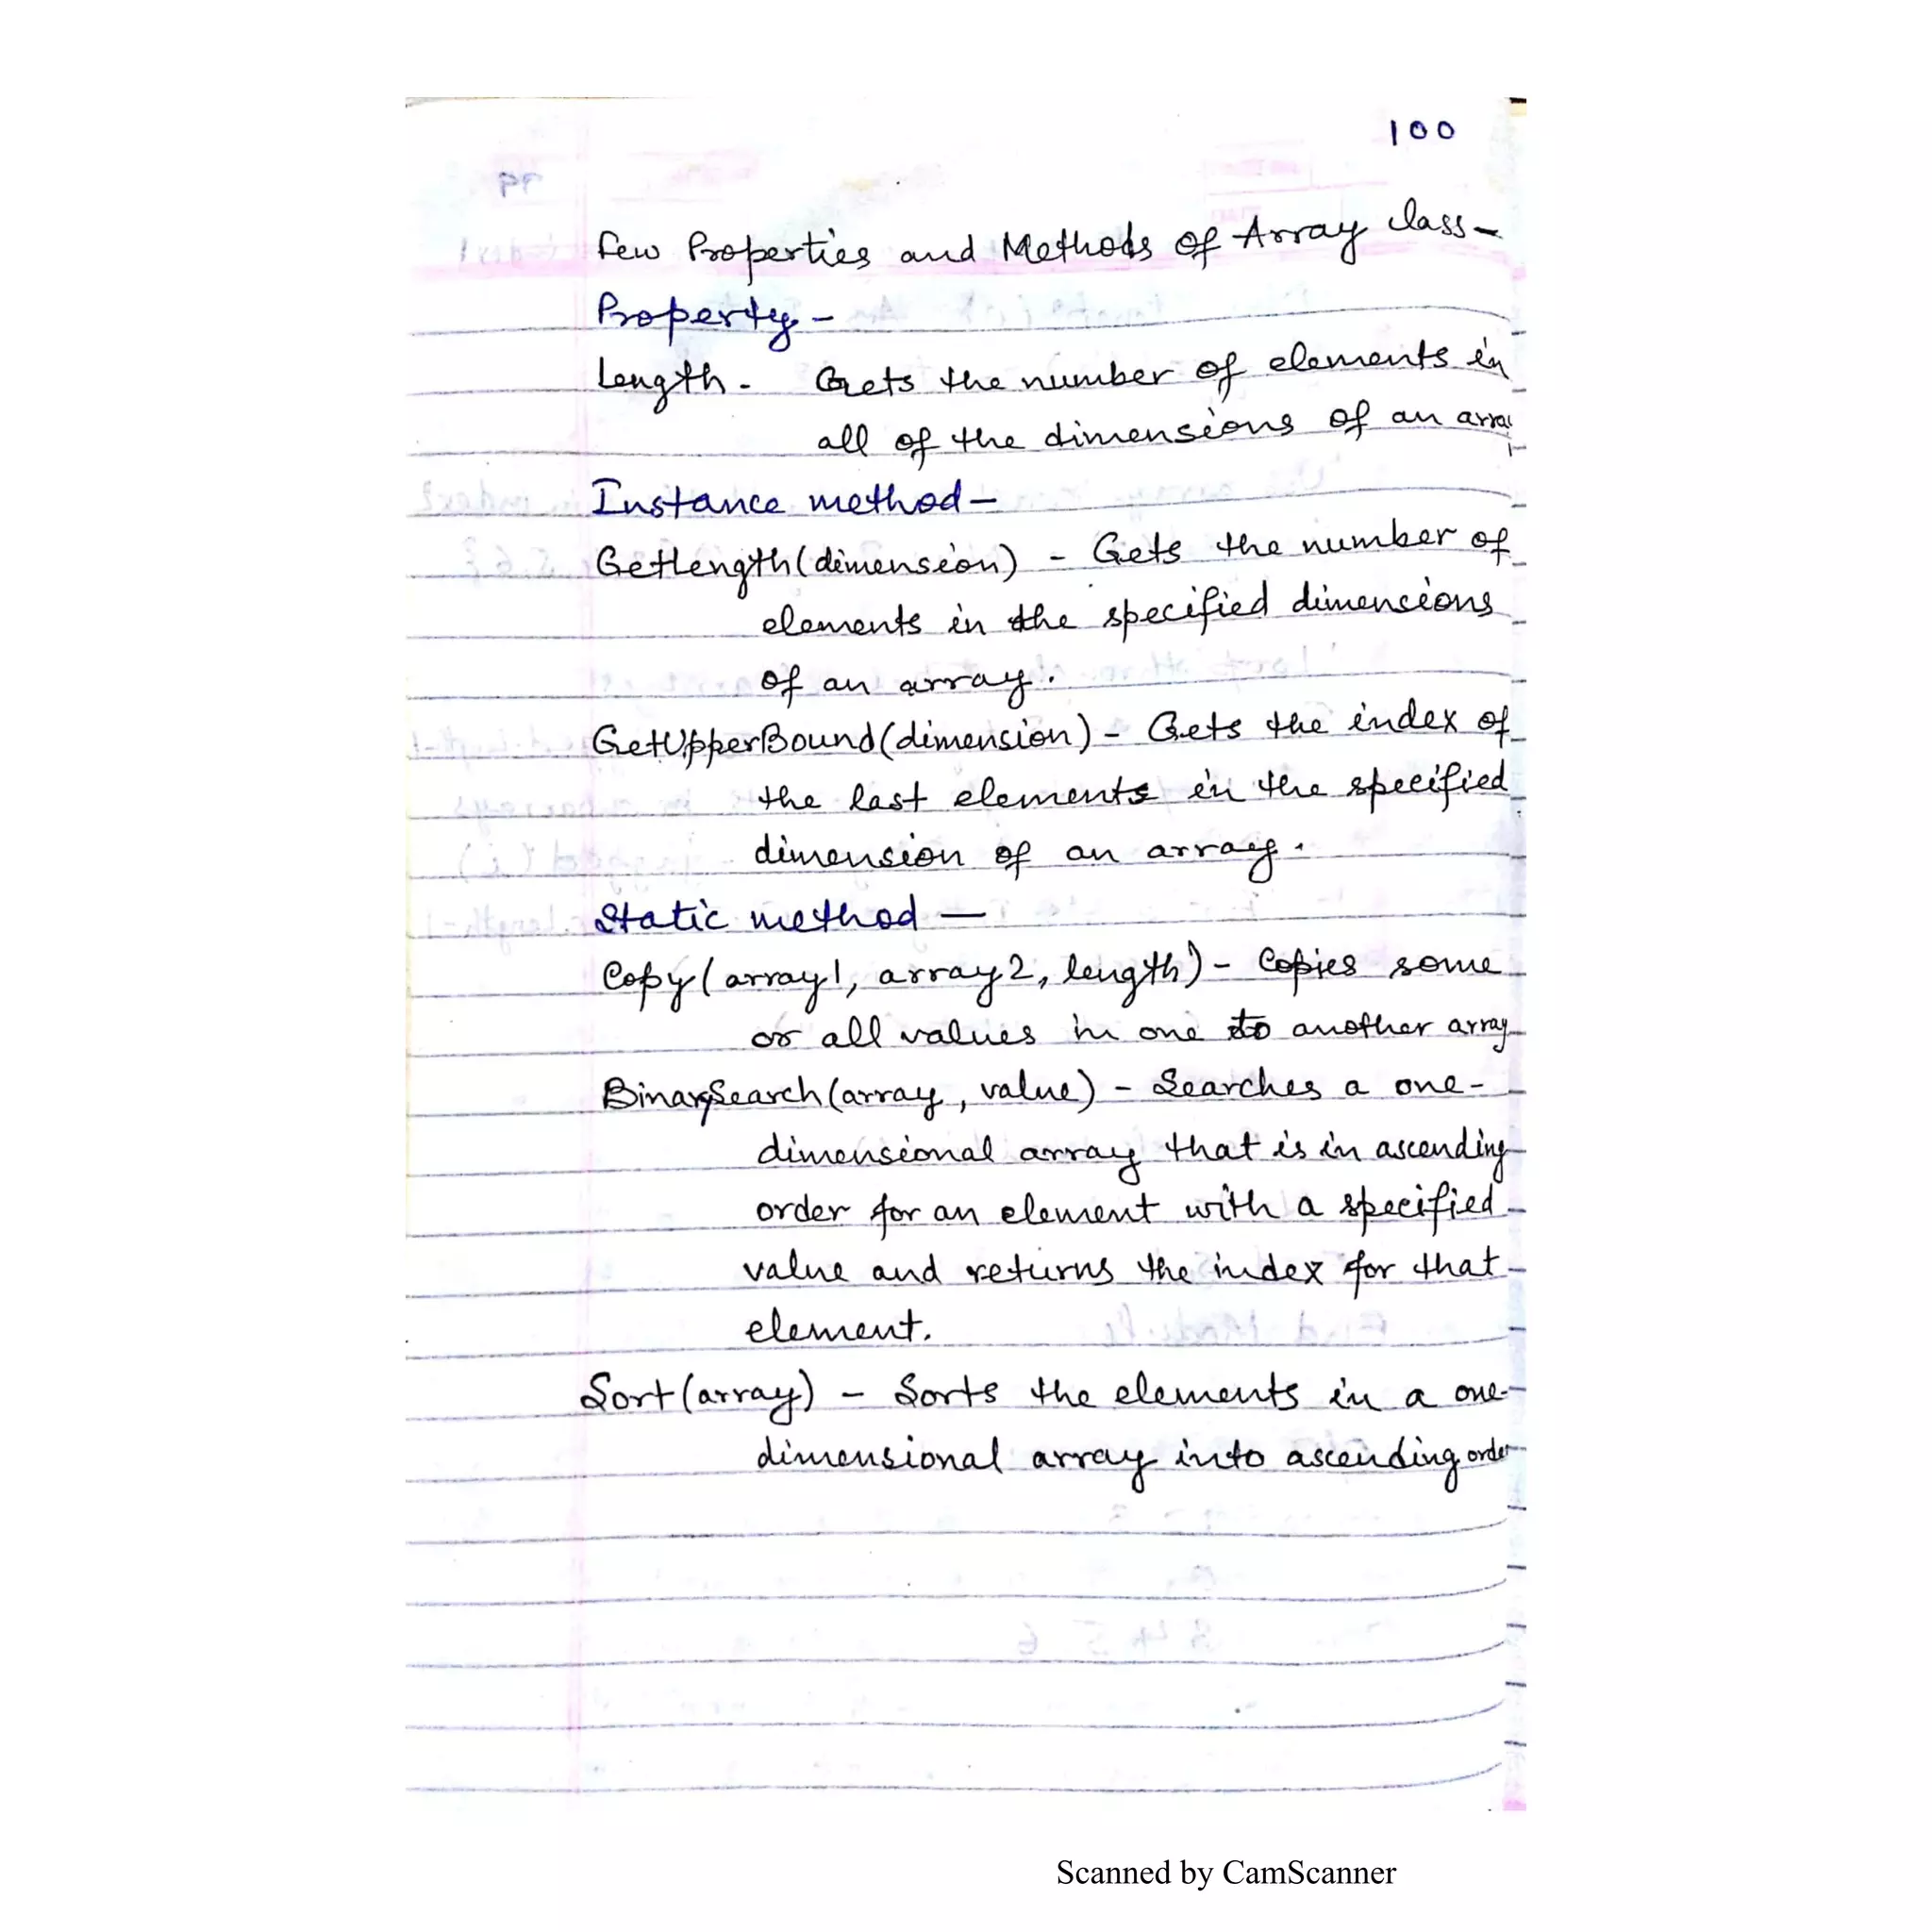 100
Few Properties and Methods of Array class-
Property-
Length- Gets the number of elements in
all of the dimensions of an
Instance method-
GetLength(dimension) - Gets the number of
elements in the specified dimensions
of an array.
GetUpperBound(dimension) - Gets the index of
the last elements in the specified
dimension of an array.
Static method-
Copy(array1, array2, length) - Copies some
or all values in one to another array
BinarySearch(array, value) - Searches a one-
dimensional array that is in ascending
order for an element with a specified
value and returns the index for that
element.
Sort(array) - Sorts the elements in a one-
dimensional array into ascending order
Scanned by CamScanner